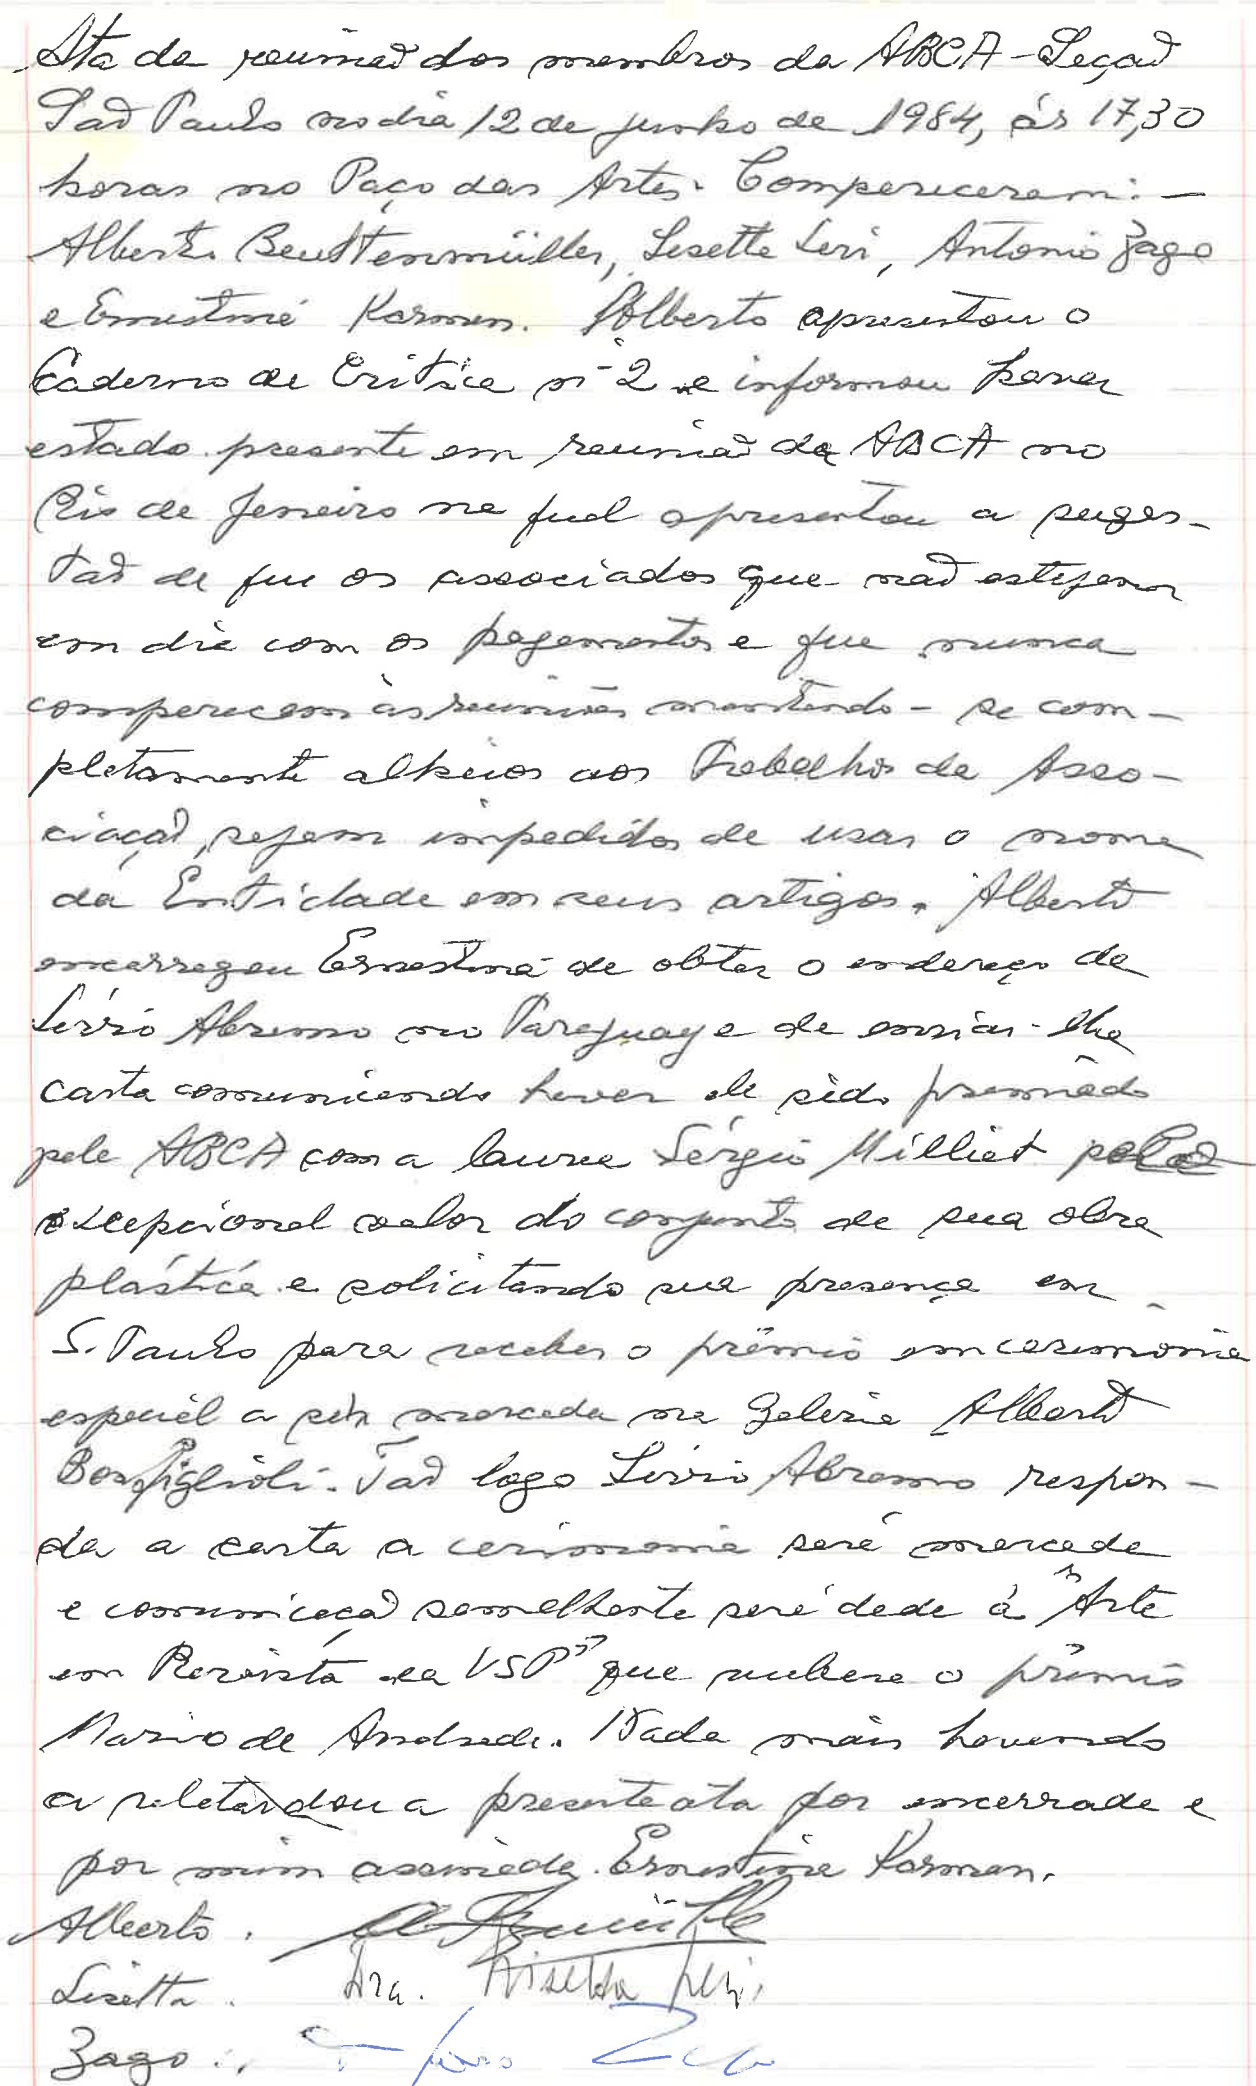 Ata da reunião dos membros da ABCA - Seção
São Paulo no dia 12 de junho de 1984, às 17,30
horas no Paço das Artes. Compareceram: -
Alberto Beuttenmüller, Lisetta Levi, Antonio Zago
e Ernestina Karman. Alberto apresentou o
Caderno de Crítica nº 2 e informou haver
estado presente em reunião da ABCA no
Rio de Janeiro na qual apresentou a suges-
tão de que os associados que não estejam
em dia com os pagamentos e que nunca
comparecem às reuniões mantendo-se com-
pletamente alheios aos Trabalhos da Asso-
ciação, sejam impedidos de usar o nome
da Entidade em seus artigos. Alberto
encarregou Ernestina de obter o endereço de
Lívio Abramo no Paraguay e de enviar-lhe
carta comunicando haver ele sido premiado
pela ABCA com a laurea Sérgio Milliet pelo
excepcional valor do conjunto de sua obra
plástica e solicitando sua presença em
S. Paulo para receber o prêmio em cerimônia
especial a ser marcada na Galeria Alberto
Bonfiglioli. Tão logo Lívio Abramo respon-
da a carta a cerimonia será marcada
e comunicação semelhante será dada à "Arte
em Revista da USP" que recebera o prêmio
Mario de Andrade. Nada mais havendo
a relatar dou a presente ata por encerrada e
por mim assinada. Ernestina Karman.
Alberto.
Lisetta. Dra. Lisetta Levi
Zago.